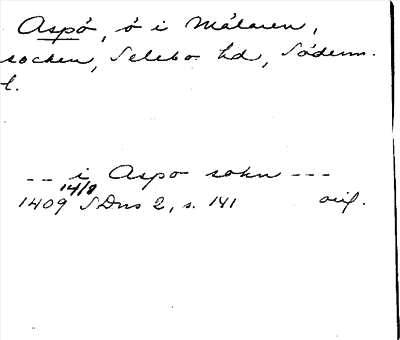 Aspö, ö i Mälaren,
socken, Selebo hd, Söderm.
l.
-- i Aspo sokn ---
14/8
1409 SDns 2, s. 141 orig.